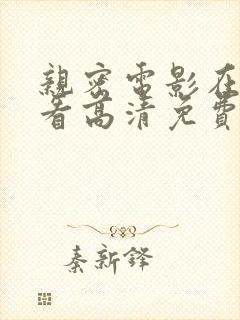 親密電影在
看高清免費
秦新鐸